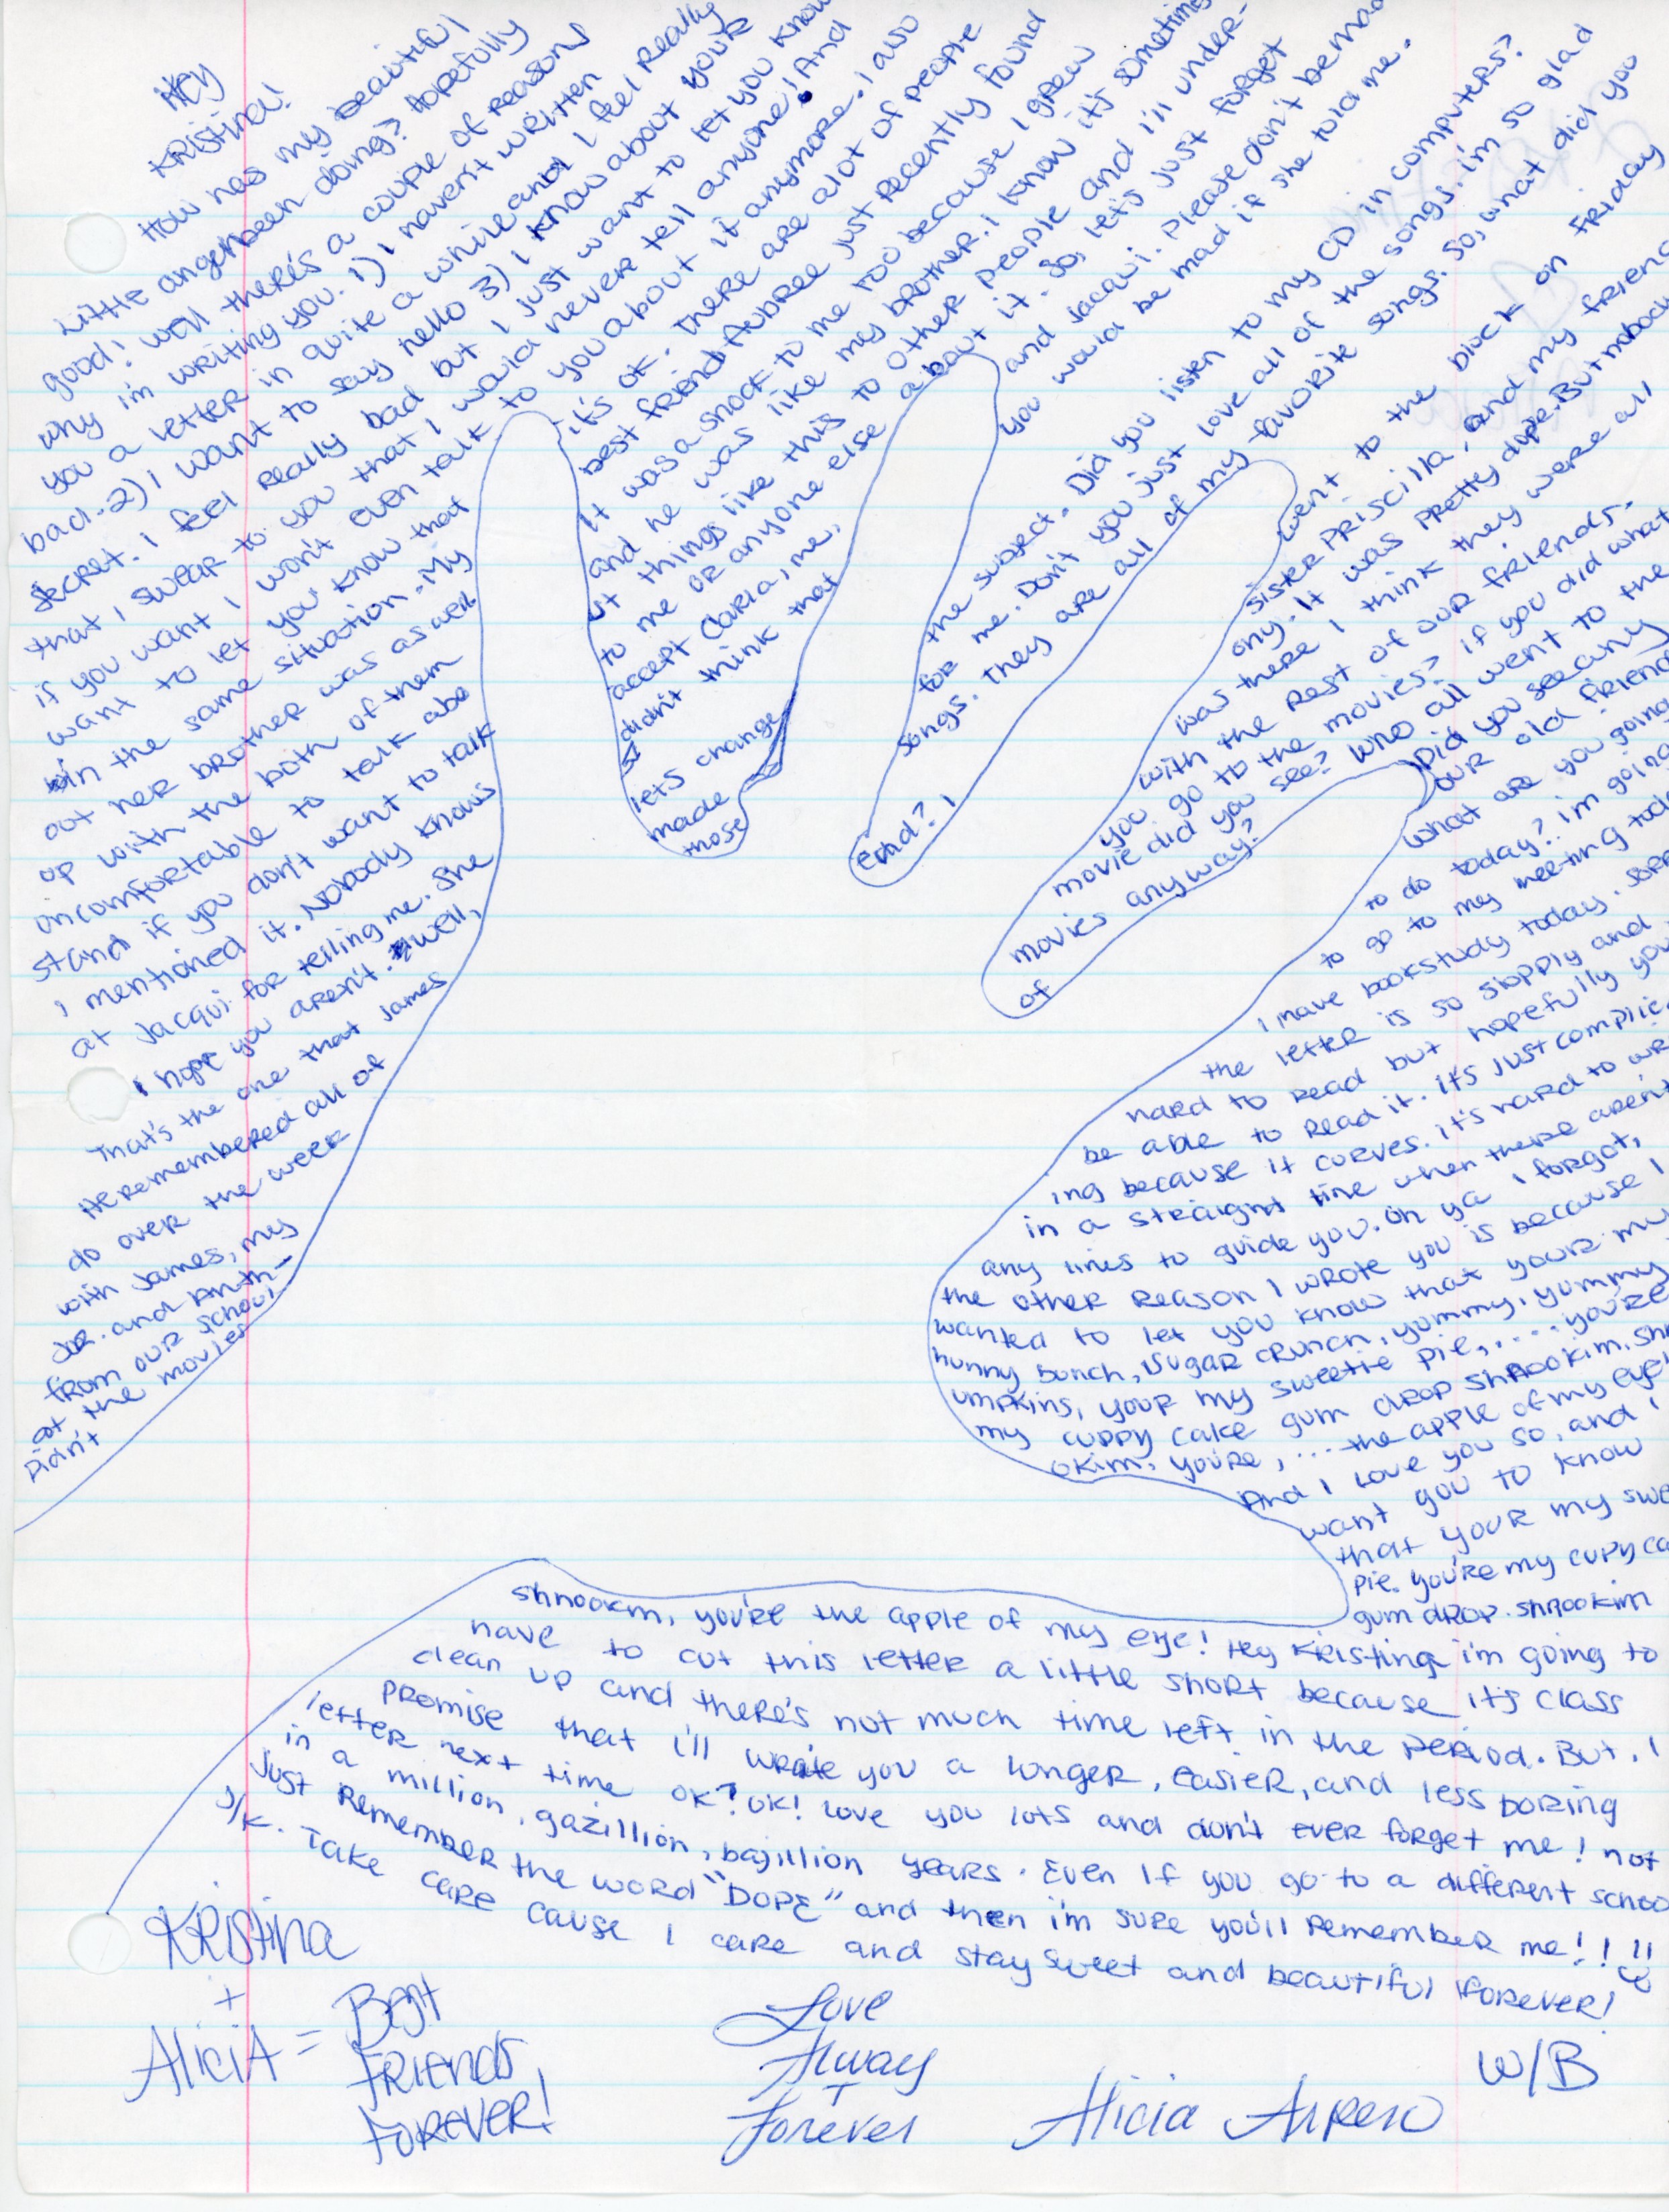 Hey
Kristina!
How has my beautiful
little angel been doing? Hopefully
good! Well there's a couple of reasons
why i'm writing you. 1) I haven't written
you a letter in quite a while and I feel really
bad. 2) I want to say hello 3) I know about your
secret. I feel really bad but I just want to let you know
that I swear to you that I would never tell anyone! And
if you want I won't even talk to you about it anymore. I also
want to let you know that it's ok. There are alot of people
in the same situation. My best friend Aubree just recently found
out her brother was as well. It was a shock to me too because I grew
up with the both of them and he was like my brother. I know it's sometimes
uncomfortable to talk abo ut things like this to other people and i'll under-
stand if you don't want to talk to me or anyone else about it. So, let's just forget
I mentioned it. Nobody knows accept Carla, me, and Jacqui. Please don't be mad
at Jacqui for telling me. She didn't think that you would be mad if she told me.
I hope you aren't. Well, lets change the subject. Did you listen to my CD in computers?
That's the one that James made for me. Don't you just love all of the songs. i'm so glad
He remembered all of those songs. They are all of my favorite songs. So, what did you
do over the week end? I went to the block on Friday
with James, my sister Priscilla, and my friend
Jr. and Anth- ony. It was pretty dope. But nobody
from our school was there I think they were all
at the movies with the rest of our friends.
Didn't you go to the movies? if you did what
movie did you see? Who all went to the
movies anyway? Did you see any
of our old friend
What are you going
to do today? i'm going
to go to my meeting
I have bookstudy today.
the letter is so slopply and
hard to read but hopefully you
be able to read it. it's just complic
ing because it curves. it's hard to
in a straight line when there aren't
any lines to guide you. oh ya I forgot,
the other reason I wrote you is because I
wanted to let you know that your my
hunny bunch, sugar crunch, yummy, yummy
umpkins, your my sweetie pie, .... you're
my cuppy cake gum drop shnookim. shn
okim. you're, ... the apple of my eye!
And I love you so, and I
want you to know
that your my swe
pie. you're my cupy ca
gum drop. shnookim
shnookm, you're the apple of my eye! Hey Kristina i'm going to
have to cut this letter a little short because it's class
clean up and there's not much time left in the period. But, I
promise that i'll write you a longer, easier, and less boring
letter next time ok? ok! love you lots and don't ever forget me! not
in a million, gazillion, bajillion years. Even if you go to a different schoo
Just remember the word "DOPE" and then i'm sure you'll remember me!!!!
J/K. Take care cause I care and stay sweet and beautiful forever!
Kristina
+
Alicia = Best
Friends
Forever!
Love
Alway
+
Forever
Alicia
W/B